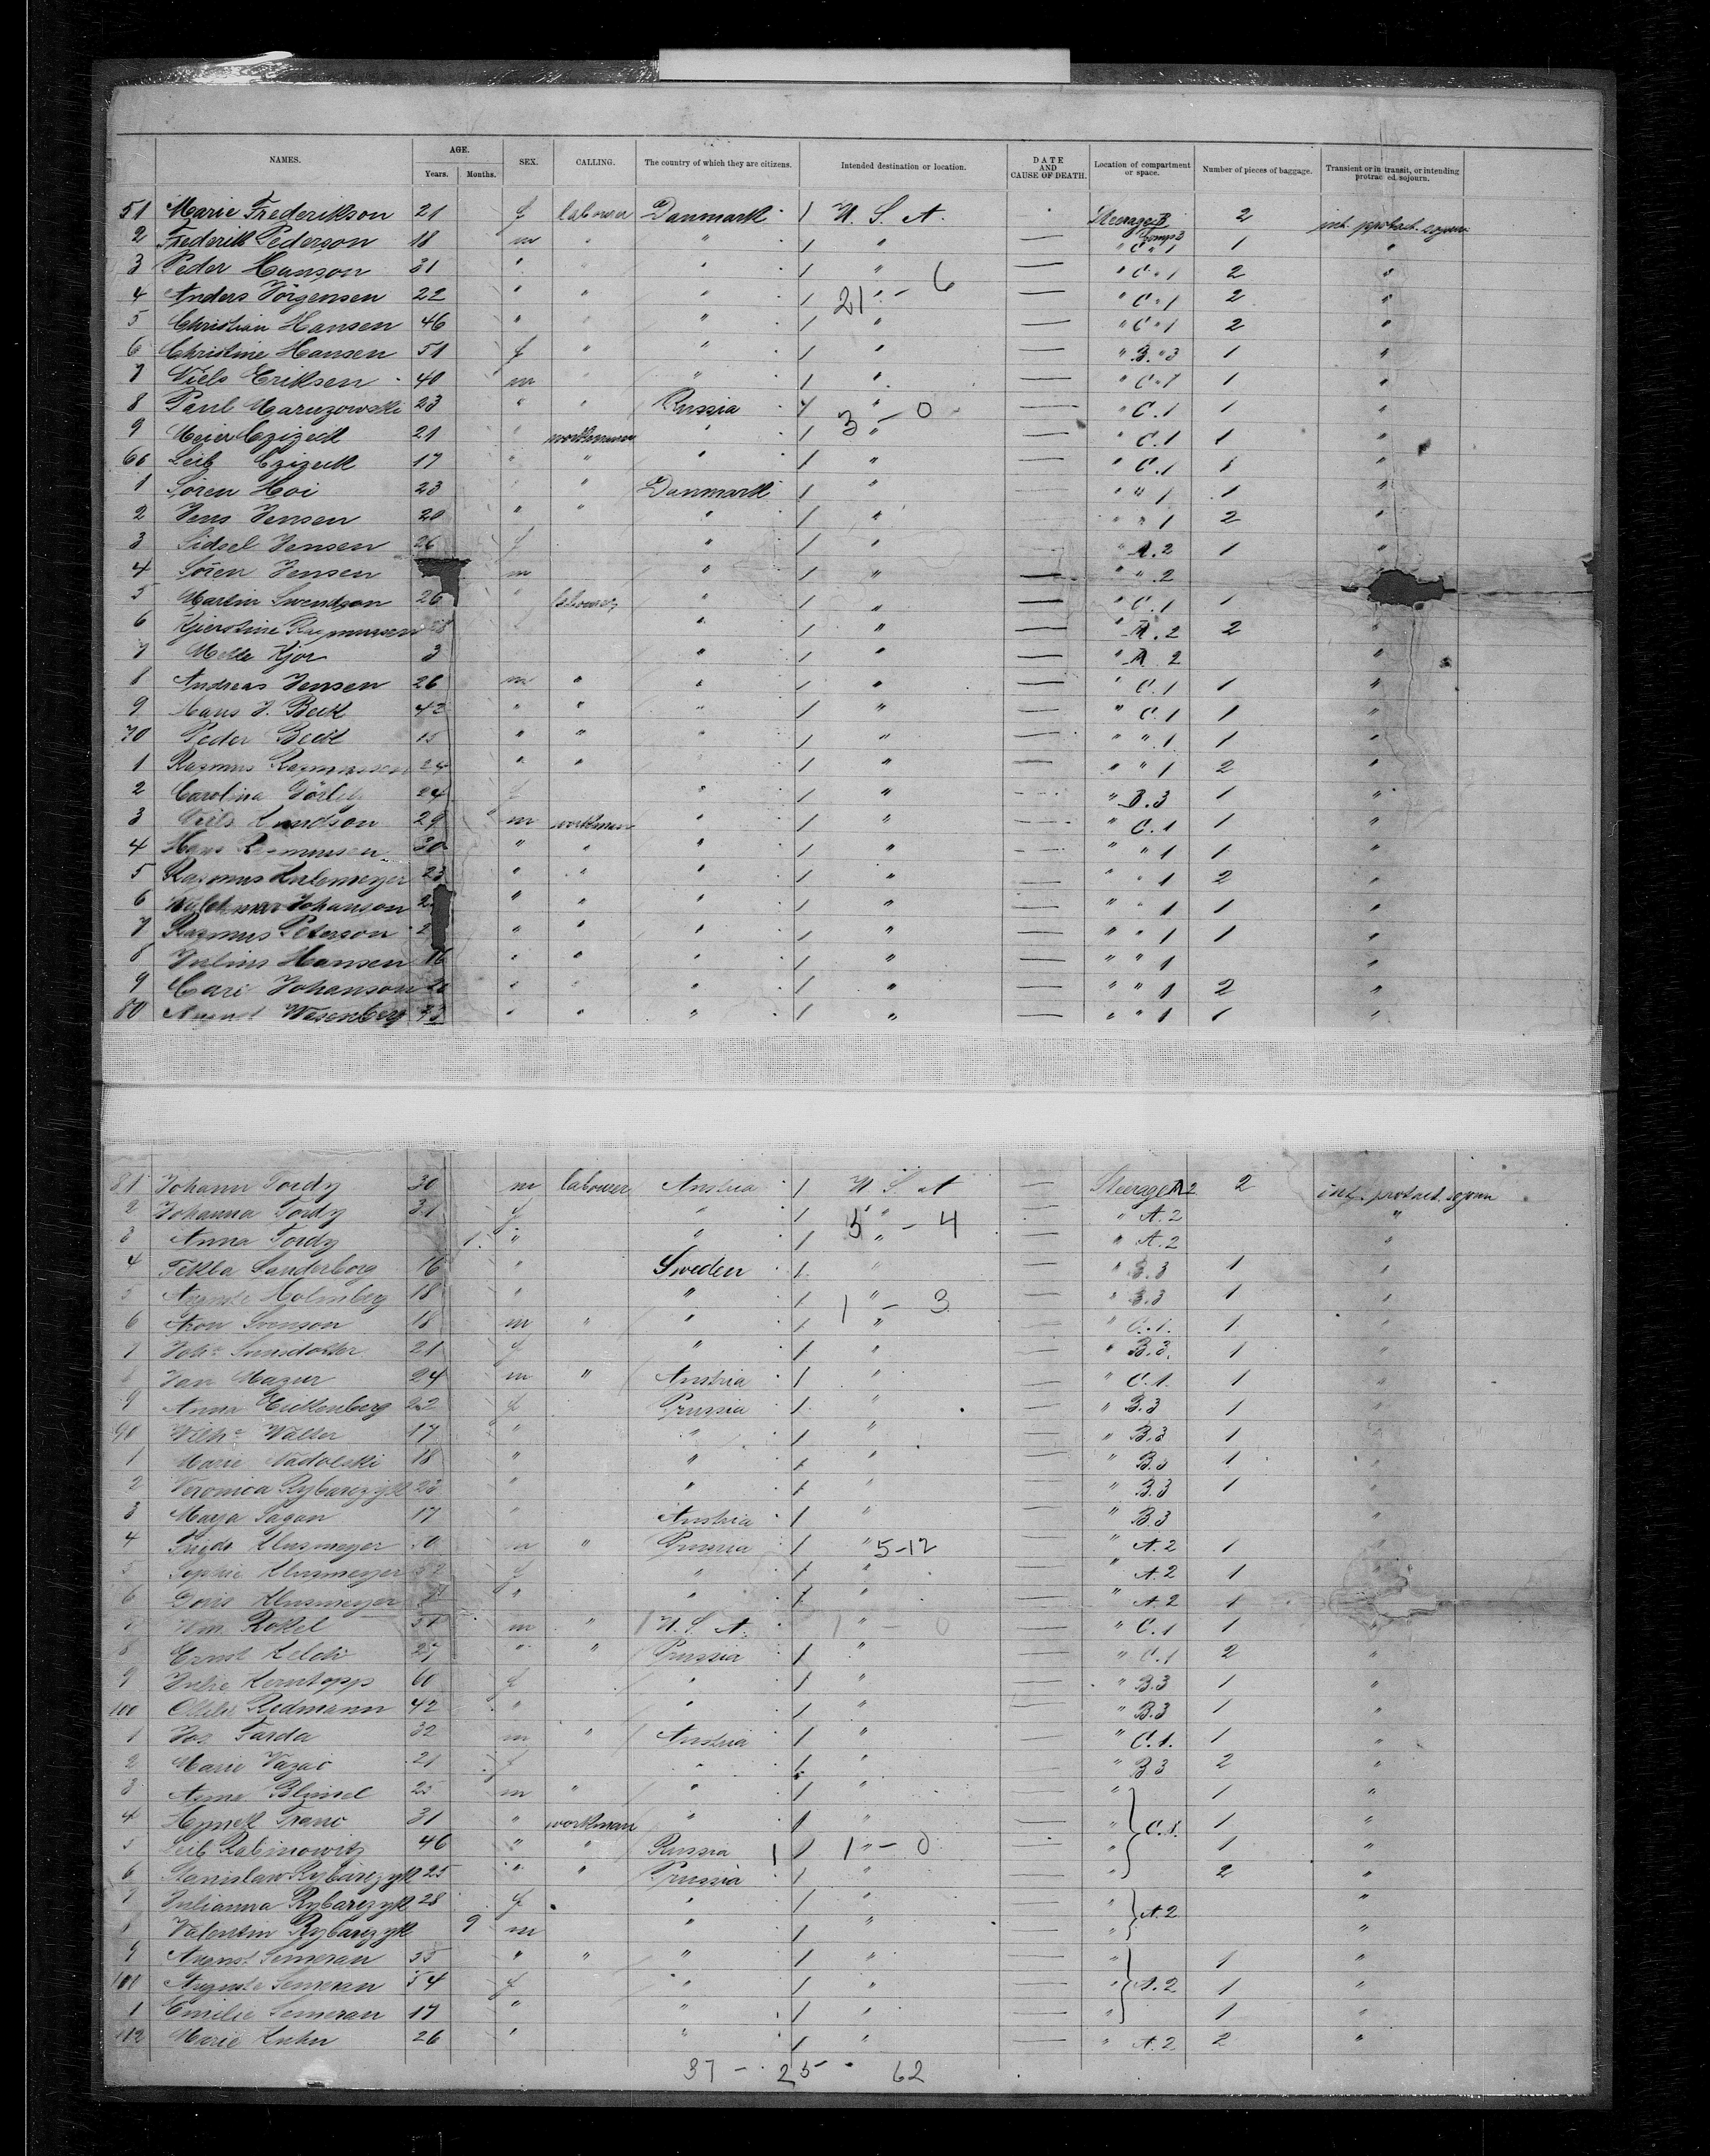 NAMES. AGE. Years. Months. SEX. CALLING. The country of which they are citizens. Intended destination or location. DATE AND CAUSE OF DEATH. Location of compartment or space. Number of pieces of baggage. Transient or in transit, or intending protracted sojourn.
51 Marie Frederikson 21 f labourer Danmark 1 U. S. A. Steerage B Comp 3 2 int. protract. sojourn
2 Frederik Pederson 18 m " " 1 " — " C " 1 1 "
3 Peder Hanson 31 " " " 1 " 6 — " C " 1 2 "
4 Anders Jörgensen 22 " " " 1 21 " - — " C " 1 2 "
5 Christian Hansen 46 " " " 1 " — " C " 1 2 "
6 Christine Hansen 51 f " " 1 " — " B. " 3 1 "
7 Niels Eriksen 40 m " " 1 " — " C " 1 1 "
8 Paul 23 " " Russia 1 " 3 - 0 — " C. 1 1 "
9 Meier Czizeck 21 " workman " 1 " — " C. 1 1 "
60 Leib Czizeck 17 " " " 1 " — " C. 1 1 "
1 Sören Hoi 23 " " Danmark 1 " — " " 1 1 "
2 Jens Jensen 20 " " " 1 " — " " 1 2 "
3 Sidsel Jensen 26 f " 1 " — " A. 2 1 "
4 Sören Jensen m " 1 " — " " 2
5 Martin Swendson 26 " labourer " 1 " — " C. 1 1
6 Kjerstine Rasmussen " 1 " — " A. 2 2 "
7 Mette Kjor 3 " 1 " — " A 2 "
8 Andreas Jensen 26 m " " 1 " — " C. 1 1 "
9 Hans J. Beck 42 " " " 1 " — " C. 1 1 "
70 Peder Beck 15 " " " 1 " — " " 1 1 "
1 Rasmus Rasmussen 24 " " " 1 " — " " 1 2 "
2 Carolina 24 f " 1 " — " B. 3 1 "
3 Niels Knudson 29 m workman " 1 " — " C. 1 1 "
4 Hans Rasmussen 30 " " " 1 " — " " 1 1 "
5 Rasmus 23 " " " 1 " — " " 1 2 "
6 Johanson " " " 1 " — " " 1 1 "
7 Rasmus Peterson " " " 1 " — " " 1 1 "
8 Julius Hansen 16 " " " 1 " — " " 1 "
9 Carl Johanson " " " 1 " — " " 1 2 "
80 August Wesenberg 33 " " " 1 " — " " 1 1 "
81 Johann Tordy 30 m labourer Austria 1 U. S. A — Steerage A 2 2 int. protract. sojourn
2 Johanna Tordy 31 f " 1 " — " A. 2 "
3 Anna Tordy 1 " " 1 5 " - 4 — " A. 2 "
4 Tekla Sanderborg 16 " Sweden 1 " — " B. 3 1 "
5 Auguste Holmberg 18 " " 1 " — " B. 3 1 "
6 Aron Svenson 18 m " " 1 1 " - 3 — " C. 1. 1 "
7 21 f " 1 " — " B. 3. 1 "
8 Jan Mazur 24 m " Austria 1 " — " C. 1. 1 "
9 Anna Eickenberg 22 f Prussia 1 " — " B. 3 1
90 Wilh. Walter 17 " " 1 " — " B. 3 1
1 Marie Nadolski 18 " " 1 " — " B. 3 1 "
2 Veronica Rybarczyk 23 " " 1 " — " B. 3 1 "
3 Marya Sagan 17 " Austria 1 " — " B. 3 "
4 Klusmeyer 50 m " Prussia 1 " 5-12 — " A. 2 1
5 Sophie Klusmeyer f " 1 " — " A. 2 1
6 Doris Klusmeyer " " 1 " — " A. 2 1
7 Wm. Rokel 51 m " U. S. A. 1 " - 0 — " C. 1 1
8 Ernst 27 " " Prussia 1 " — " C. 1 2 "
9 Julie Kerntopp 60 f " 1 " — " B. 3 1 "
100 Redmann 42 " " 1 " — " B. 3 1 "
1 Jos. Tarda 32 m " Austria 1 " — " C. 1. 1 "
2 Marie 21 f " 1 " — " B. 3 2 "
3 25 m " " 1 " — " 1 "
4 Hynek Franc 31 " workman " 1 " — " C. 1. 1 "
5 Leib Rabinowitz 46 " " Russia 1 1 1 " - 0 — " 1 "
6 Stanislaw Rybarczyk 25 " " Prussia 1 " — " 2 "
7 Julianna Rybarczyk 28 f " 1 " — " A. 2 "
8 Valentin Rybarczyk 9 m " 1 " — " "
9 August Semeran 55 " " " 1 " — " 1 "
Auguste Semeran 54 f " 1 " — " A. 2 1 "
1 Emilie Semeran 17 " " 1 " — " 1 "
112 Marie Kuhn 26 " " 1 " — " A. 2 2 "
37 - 25 - 62